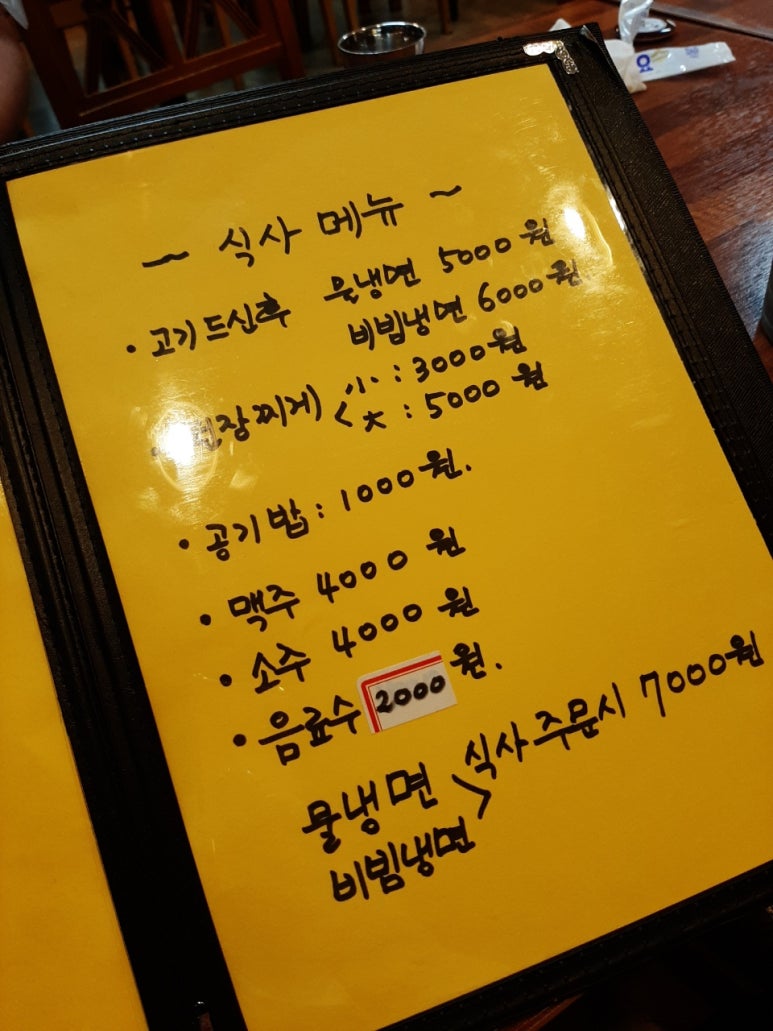 ~ 식사 메뉴 ~
• 고기 드신후 물냉면 5000원
비빔냉면 6000원
• 된장찌게 < 小 : 3000원
大 : 5000원
• 공기밥 : 1000원.
• 맥주 4000원
• 소주 4000원
• 음료수 2000원.
물냉면 > 식사 주문시 7000원
비빔냉면
요